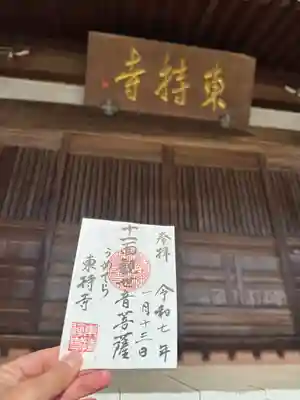 東持寺
奉拝
令和七年
一月十三日
十一面観世音菩薩
うめでら
東持寺